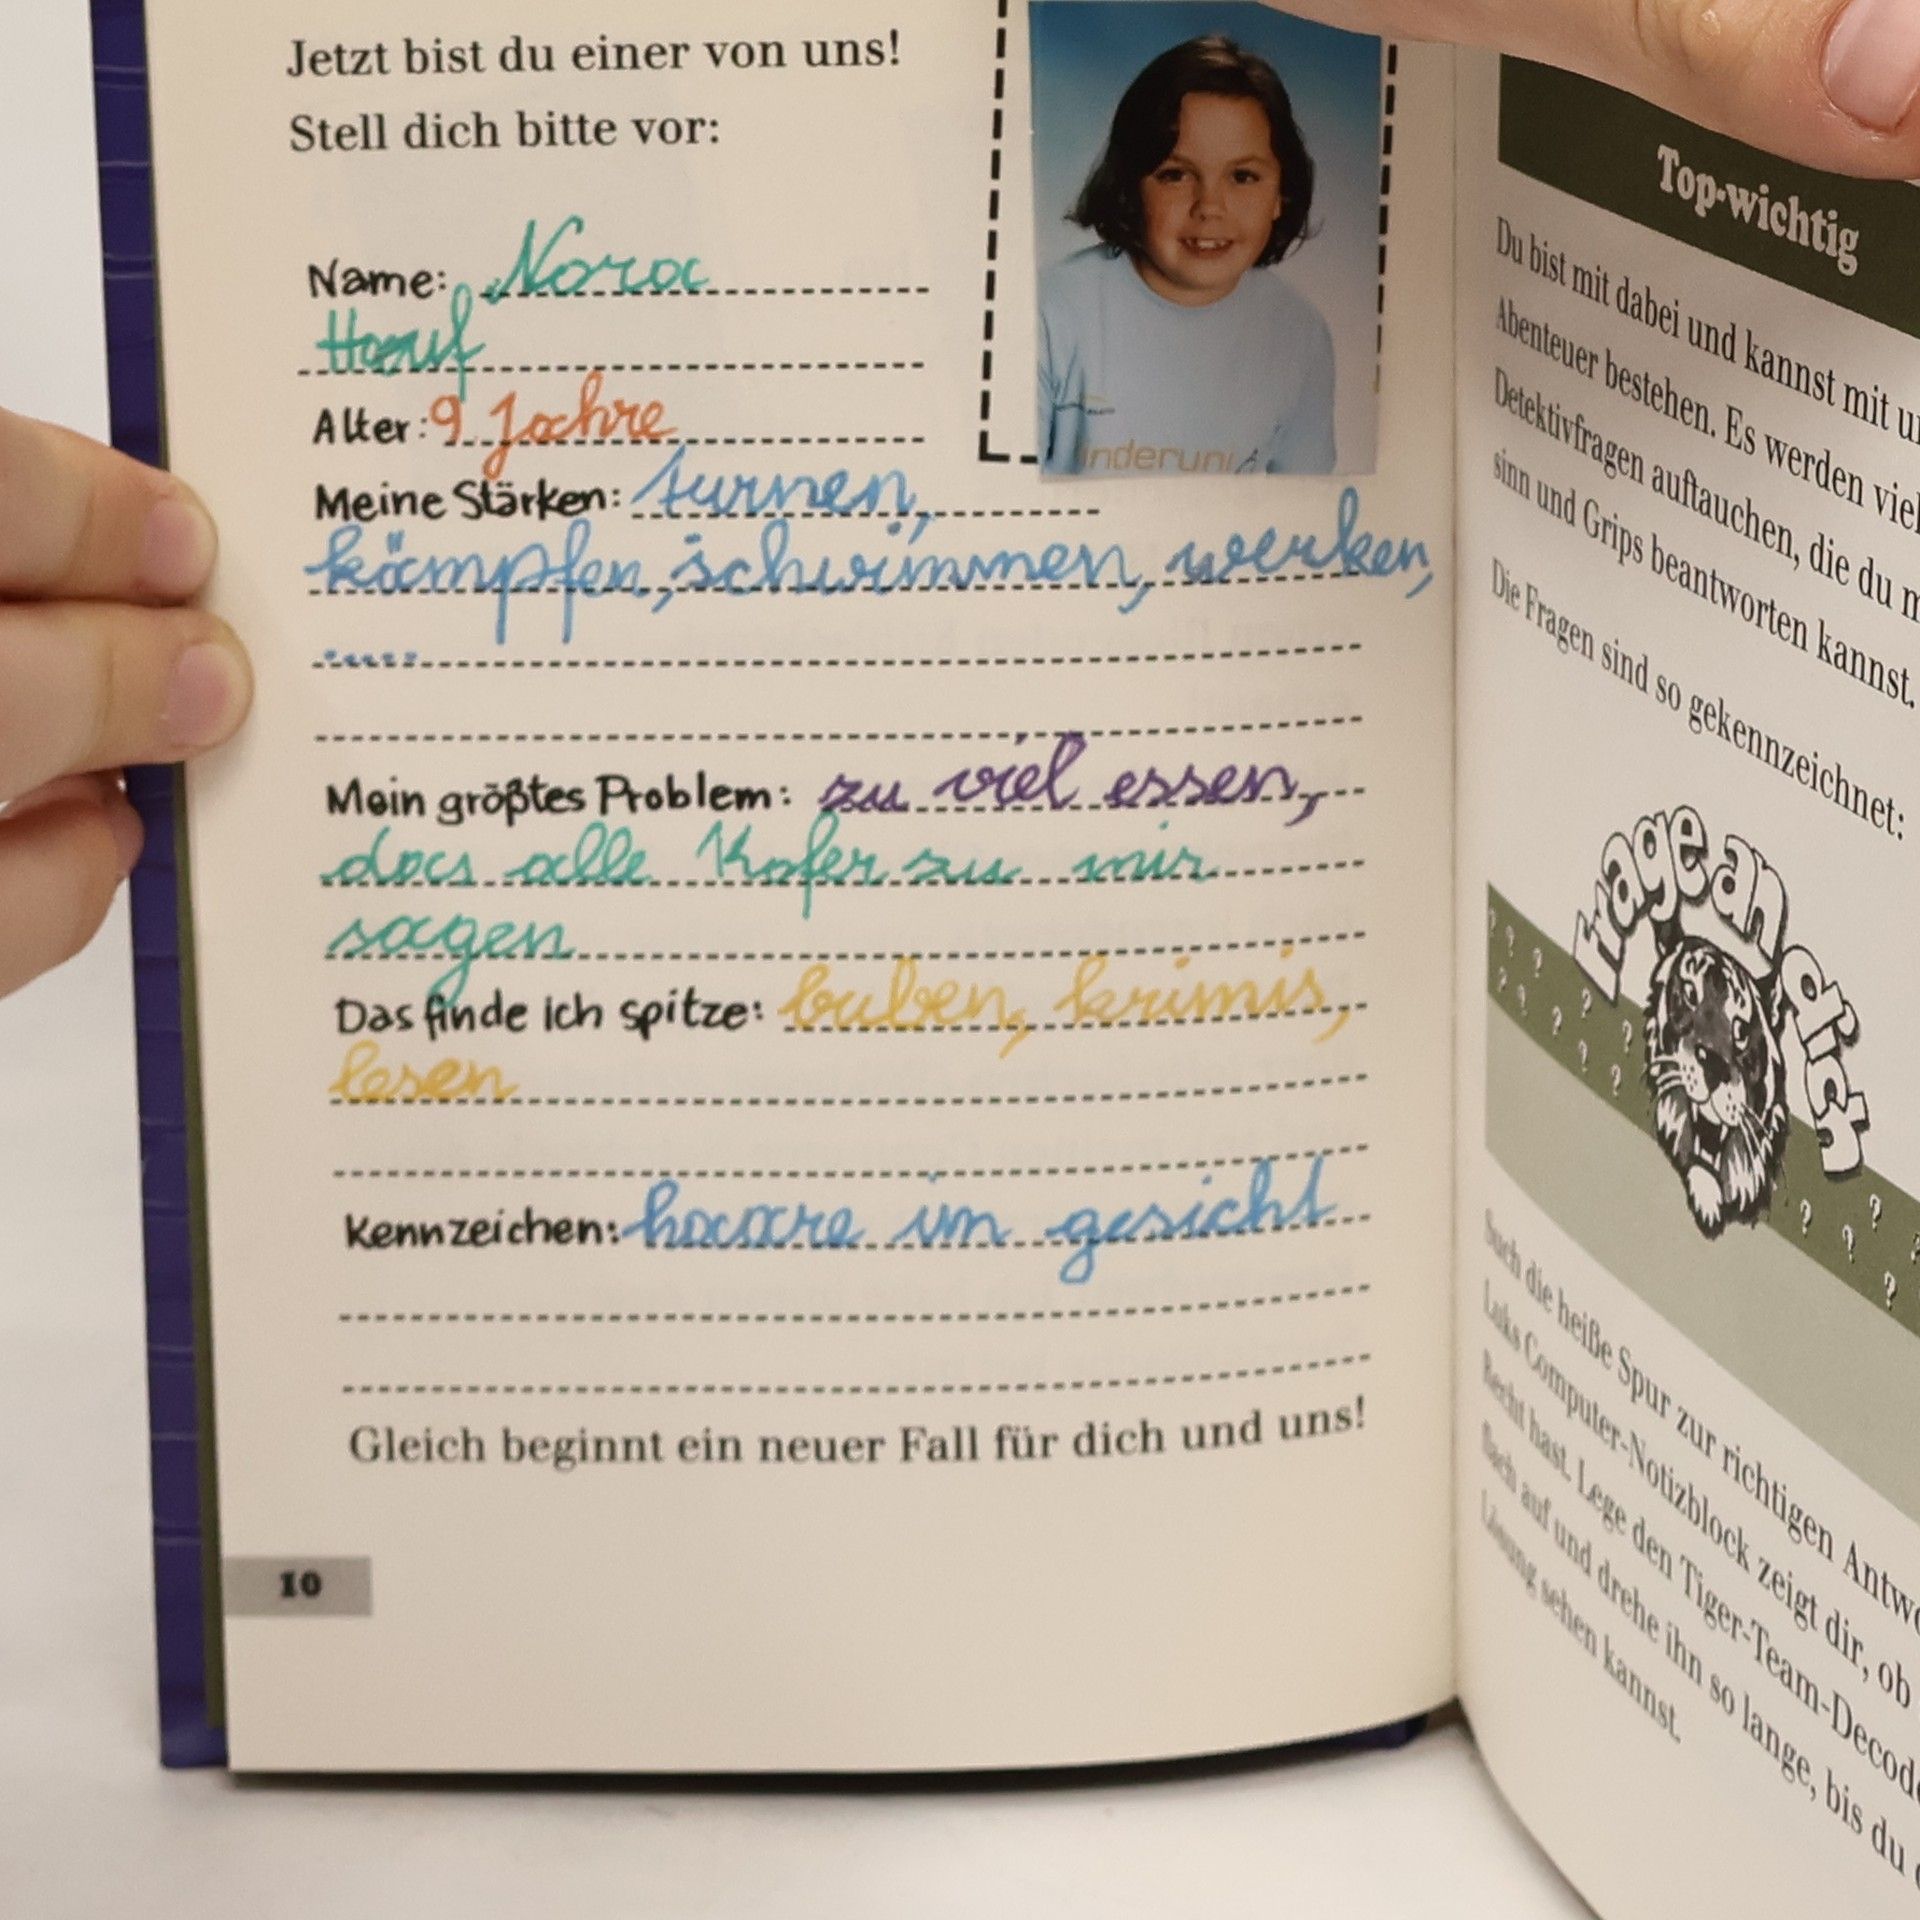 Jetzt bist du einer von uns!
Stell dich bitte vor:
Name: Nora
Haruf
Alter: 9 Jahre
Meine Stärken: turnen,
kämpfen, schwimmen, werken,
.....
Mein größtes Problem: zu viel essen,
das alle Kofer zu mir
sagen
Das finde ich spitze: buben, krimis,
lesen
Kennzeichen: haare im gesicht
Gleich beginnt ein neuer Fall für dich und uns!
10
Top-wichtig
Du bist mit dabei und kannst mit
Abenteuer bestehen. Es werden
Detektivfragen auftauchen, die du
sinn und Grips beantworten kannst.
Die Fragen sind so gekennzeichnet:
Frage an dich
Such die heiße Spur zur richtigen
Luks Computer-Notizblock zeigt dir, ob
Recht hast. Lege den Tiger-Team-
Dach auf und drehe ihn so lange, bis du
Lösung sehen kannst.